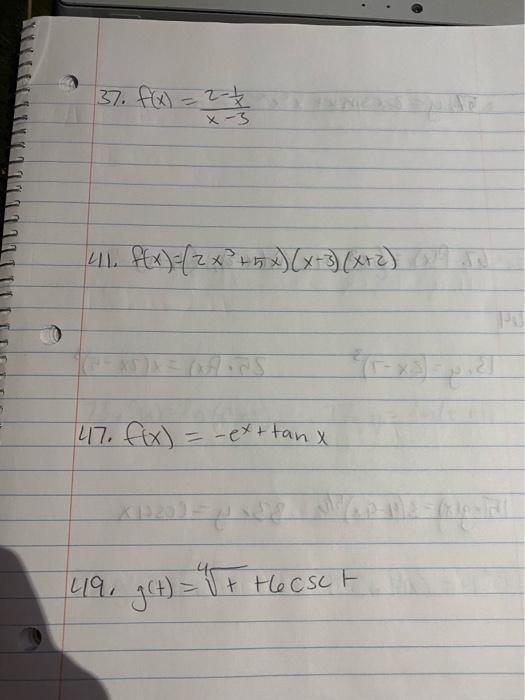 37. f(x) = 2-1/x
x-3
41. f(x)=(2x³+5x)(x-3)(x+2)
47. f(x) = -eˣ+tan x
49. g(t) = ⁴√t +6csc t